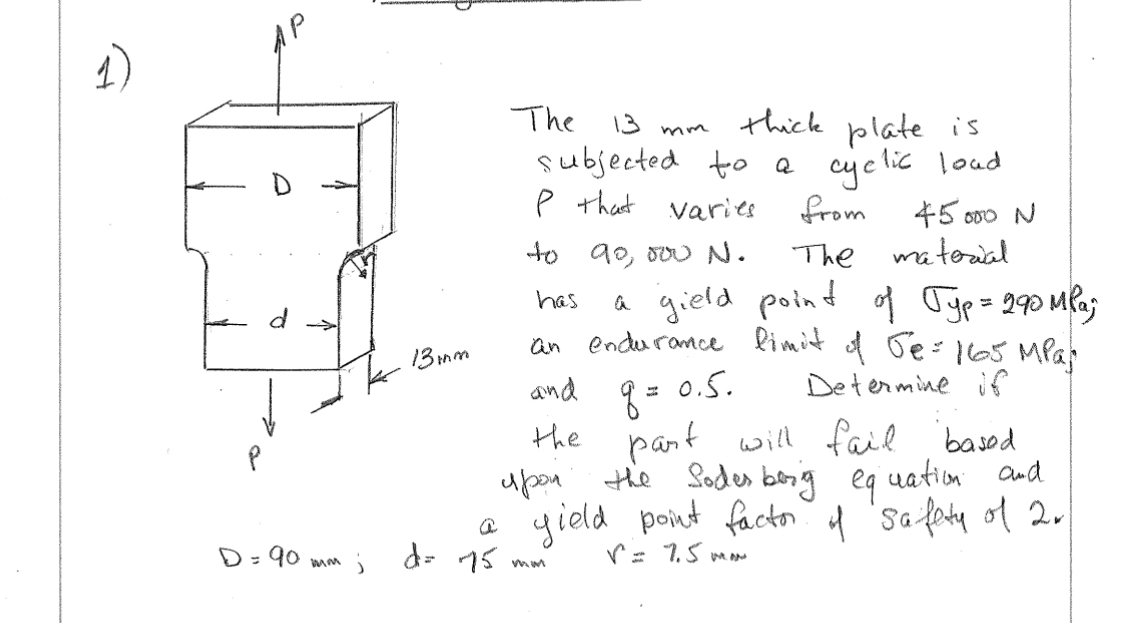 1)
P
D
r
d
13mm
P
The 13 mm thick plate is
subjected to a cyclic load
P that varies from 45000 N
to 90,000 N. The material
has a yield point of σyp = 290 MPa;
an endurance limit of σe = 165 MPa;
and q = 0.5. Determine if
the part will fail based
upon the Soderberg equation and
a yield point factor of safety of 2.
D = 90 mm ; d = 75 mm r = 7.5 mm